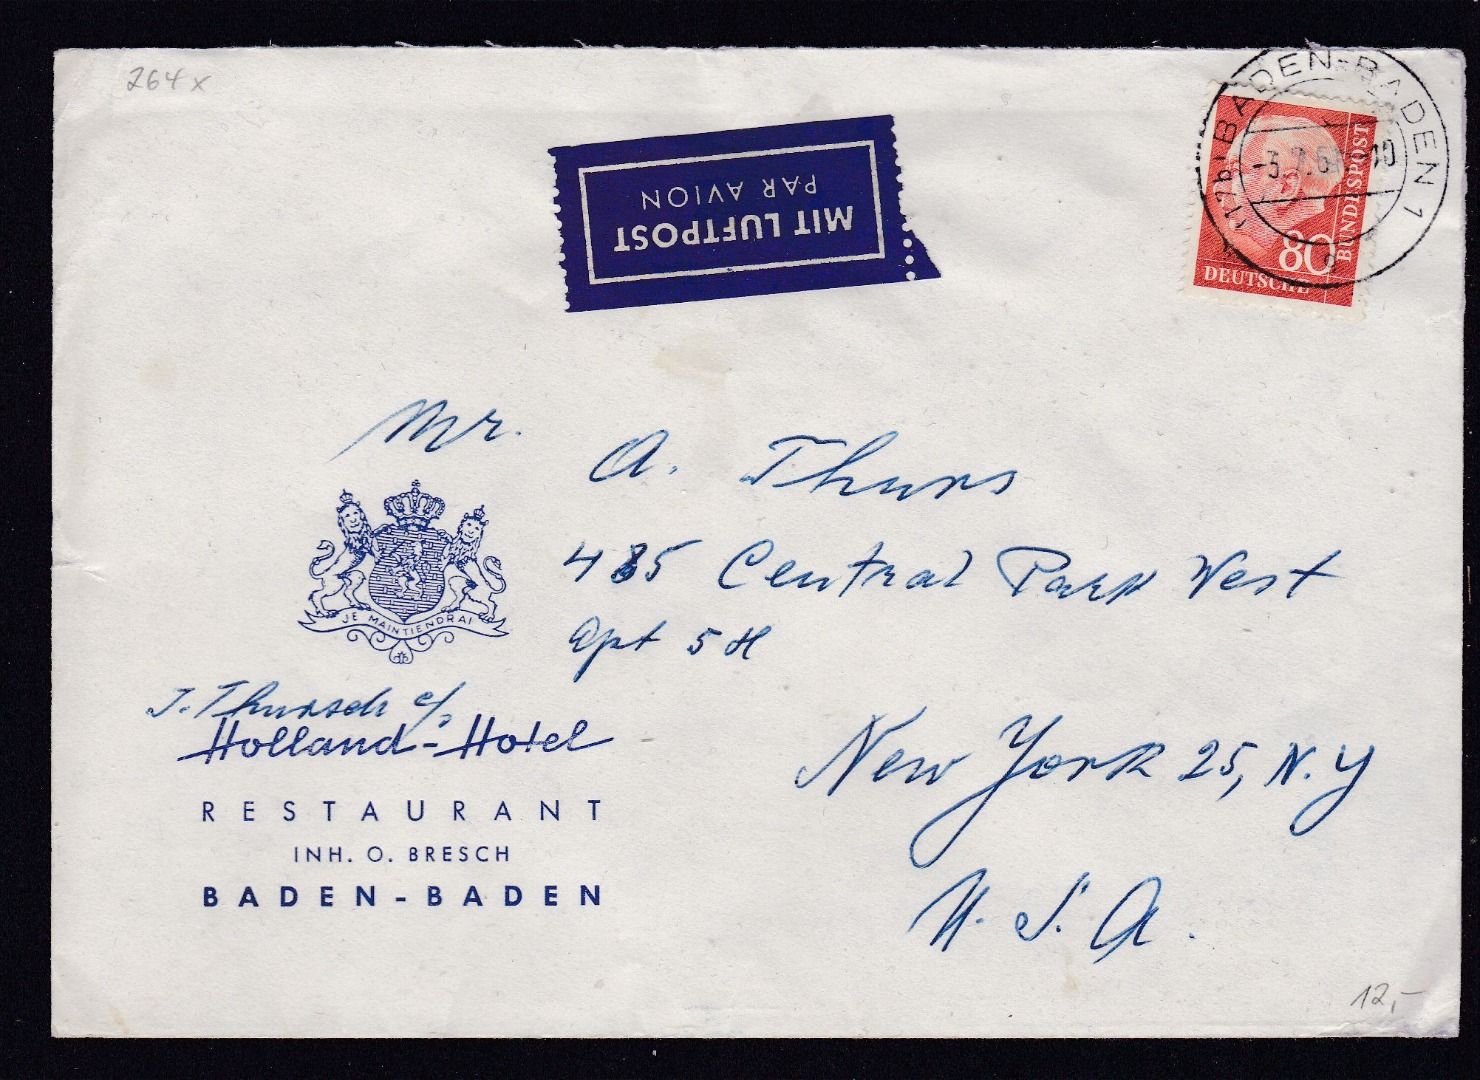 264x
MIT LUFTPOST
PAR AVION
(17b) BADEN-BADEN 1
-3.7.61-10
80
DEUTSCHE
BUNDESPOST
Mr. A. Thurs
485 Central Park West
Apt 5H
New York 25, N.Y
U.S.A.
JE MAINTIENDRAI
J. Thursch c/o
Holland-Hotel
RESTAURANT
INH. O. BRESCH
BADEN-BADEN
12,-